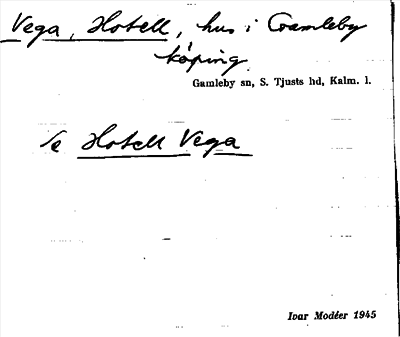 Vega, Hotell, hus i Gamleby
köping.
Gamleby sn, S. Tjusts hd, Kalm. l.
Se Hotell Vega
Ivar Modéer 1945